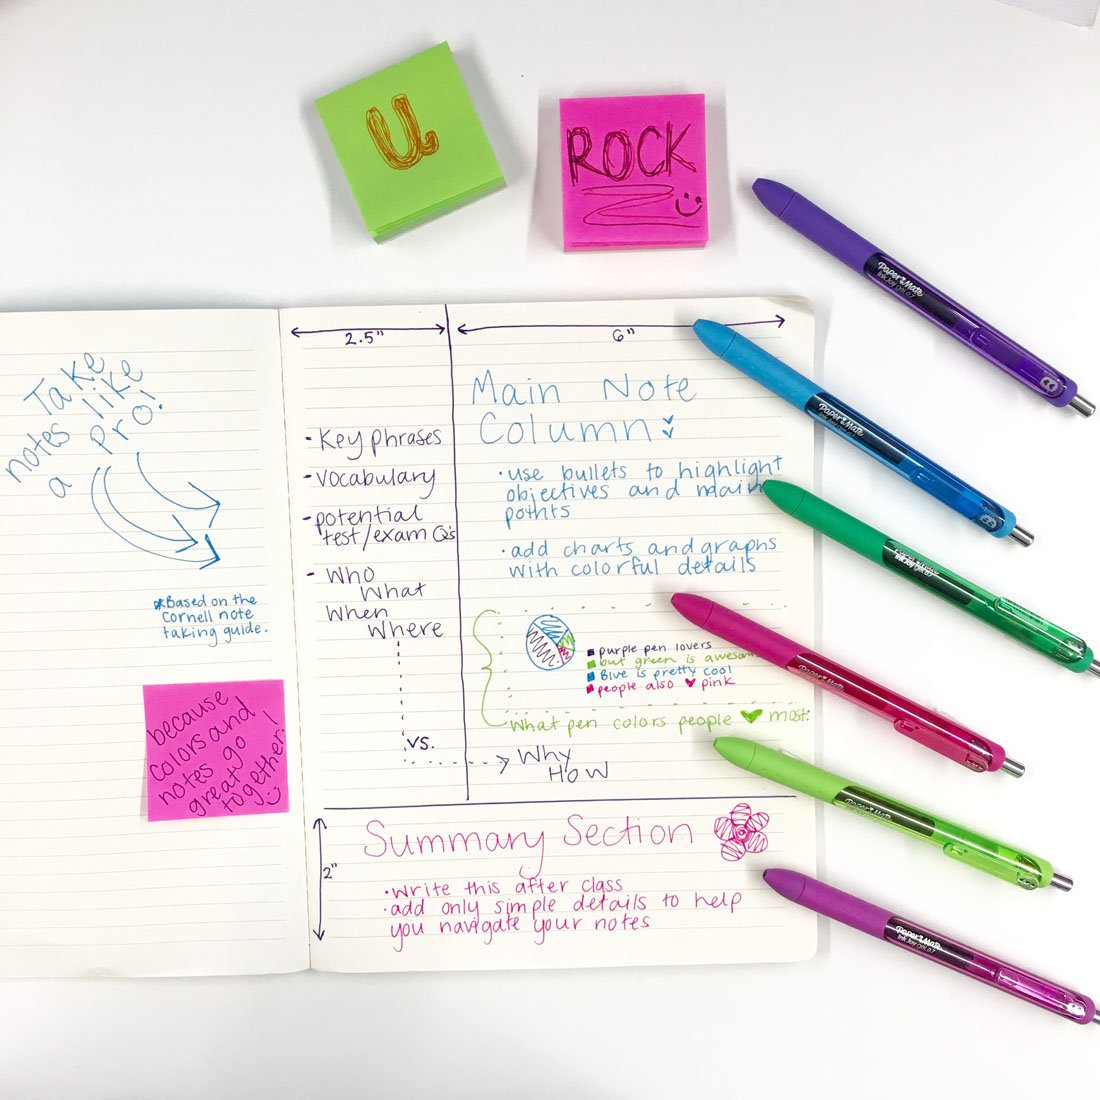 U
ROCK
2.5"
6"
Take
notes like
a pro!
*Based on the
Cornell note
taking guide.
because
colors and
notes go
great
together!
- Key phrases
- vocabulary
- potential
test/exam Q's
- Who
What
When
Where
vs.
Main Note
Column:
• use bullets to highlight
objectives and main
points
• add charts and graphs
with colorful details
purple pen lovers
but green is awesome
Blue is pretty cool
people also ♥ pink
What pen colors people ♥ most:
Why
How
2"
Summary Section
• write this after class
• add only simple details to help
you navigate your notes
Paper Mate
InkJoy Gel 0.7
Paper Mate
Paper Mate
InkJoy Gel 0.7
Paper Mate
Paper Mate
Paper Mate
InkJoy Gel 0.7